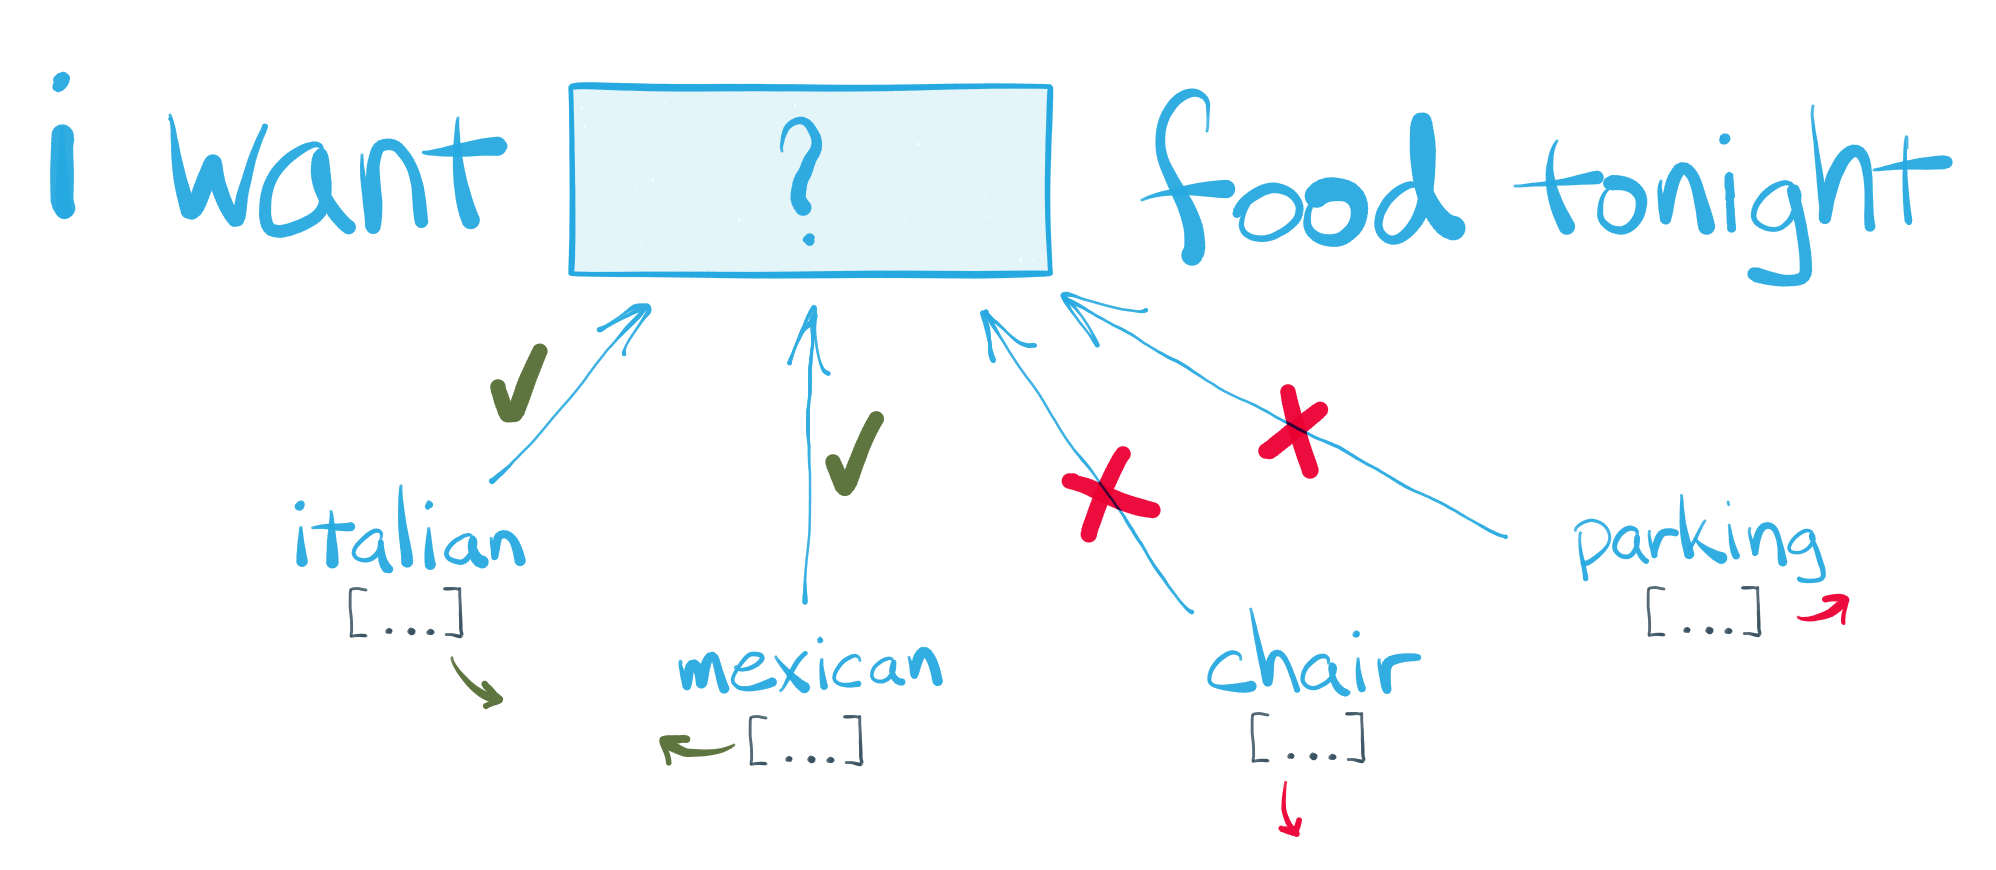 i want ? food tonight
italian
[...]
mexican
[...]
chair
[...]
parking
[...]